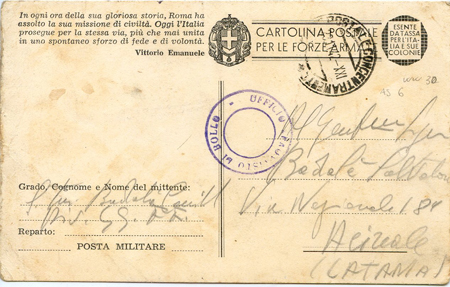 In ogni ora della sua gloriosa storia, Roma ha
assolto la sua missione di civiltà. Oggi l'Italia
prosegue per la stessa via, più che mai unita
in uno spontaneo sforzo di fede e di volontà.
Vittorio Emanuele
CARTOLINA POSTALE
PER LE FORZE ARMATE
ESENTE
DA TASSA
PER L'ITA-
LIA E SUE
COLONIE
POSTA
CONCENTRAMENTO
UFFICIO SPROVVISTO DI BOLLO
Al
Badalà Salvatore
Via Nazionale 184
Acireale
(CATANIA)
Grado, Cognome e Nome del mittente:
Badalà
Reparto:
POSTA MILITARE